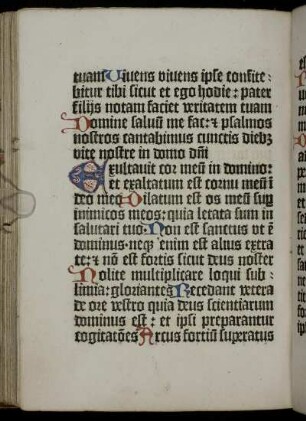 tuam Viuens viuens ipse confite⸗
bitur tibi sicut et ego hodie: pater
filijs notam faciet veritatem tuam
Domine saluū me fac: ⁊ psalmos
nostros cantabimus cunctis diebꝫ
vite nostre in domo dn̄i
Exultauit cor meū in domino:
et exaltatum est cornu meū ī
deo meo Dilatum est os meū sup̄
inimicos meos: quia letata sum in
salutari tuo. Non est sanctus ut ē
dominus: neqꝫ enim est alius extra
te: ⁊ nō est fortis sicut deus noster
Nolite multiplicare loqui sub⸗
limia: gloriantes Recedant vetera
de ore vestro quia deus scientiarum
dominus est: et ipsi preparantur
cogitatōes Arcus fortiū superatus